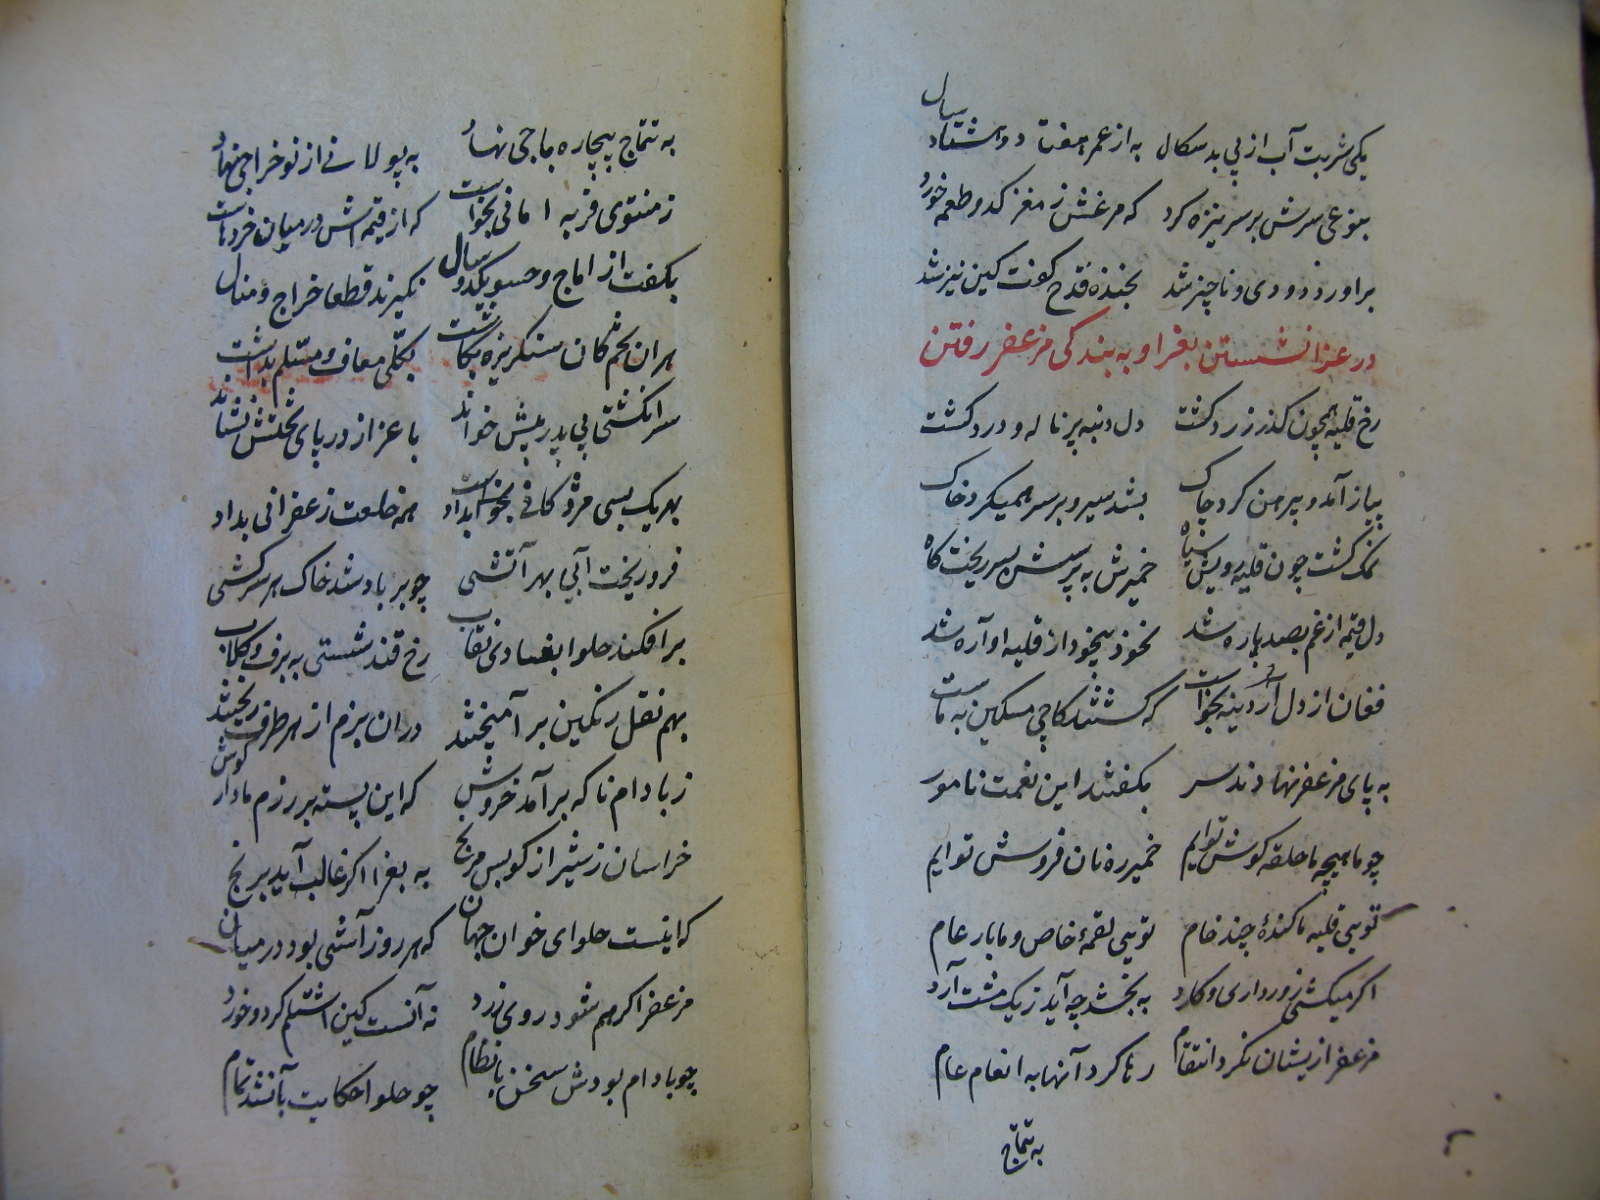 یکی شربت آب از پی بد سکال به از عمر هفتاد و هشتاد سال
بنوعی سرش بر سر نیزه کرد که مرغش ز مغز کدو طعمه خورد
براورد دودی و ناچیز شد بخنده قدح کفت کین نیز شد
در عزا نشستن بغرا و به بندکی مزعفر رفتن
رخ قلیه همچون کذر زرد کشت دل دنبه پر ناله و درد کشت
پیاز آمد و پیرهن کرد چاک بشد سیر و بر سر همیکرد خاک
نمک کشت چون قلیه رویش سیاه خمیرش به پرسش بسر ریخت کاه
دل قیمه از غم بصد پاره شد نخود بیخود از قلیه اواره شد
فغان از دل آردینه بخواست که کشتند کاچی مسکین به ماست
به پای مزعفر نهادند سر بکفتند این نغمت نامور
چو ماهیچه ما حلقه کوش توایم خمیره نان فروش توایم
تویی قلیه ما کندهٔ چند خام تویی لقمهٔ خاص و ما بار عام
اکر میکشی زور داری و کارد به بخشد چه آید ز یک مشت آرد
مزعفر ازیشان نکرد انتقام رها کرد آنها به انعام عام
به تتماج
به تتماج بیچاره باجی نهاد به بولانی از نو خراجی نهاد
ز منتوی فربه امانی بخواست که از قیمه اش در میان خرده‌است
بکفت از اماج و حسو یکدو سال نکیرند قطعا خراج و منال
هر ان تخم کان سنکریزه بکاشت بکلی معاف و مسلم بداشت
سر انکشتی بی پدر پیش خواند با عزاز در پای تختش نشاند
بهریک بسی مزد کافی بداد همه خلعت زعفرانی بداد
فرو ریخت آبی بهر آتشی چو بر باد شد خاک هر سرکشی
برافکند حلوا بغدادی نقاب رخ قند شستی به برف و کلاب
بهم نقل رنکین بر آمیختند دران بزم از هر طرف ریختند
ز بادام ناکه بر آمد خروش که این پسته بر رزم ما دار کوش
خراسان ز شیراز کو بس مرنج به بغرا اکر غالب آید برنج
که اینست حلوای خوان جهان که هر روز آشی بود در میان
مزعفر اکر هم شود روی زرد نه آنست کین اشتلم کرد و خورد
چو بادام بودش سخن با نظام چو حلوا حکایت بآنشد تمام